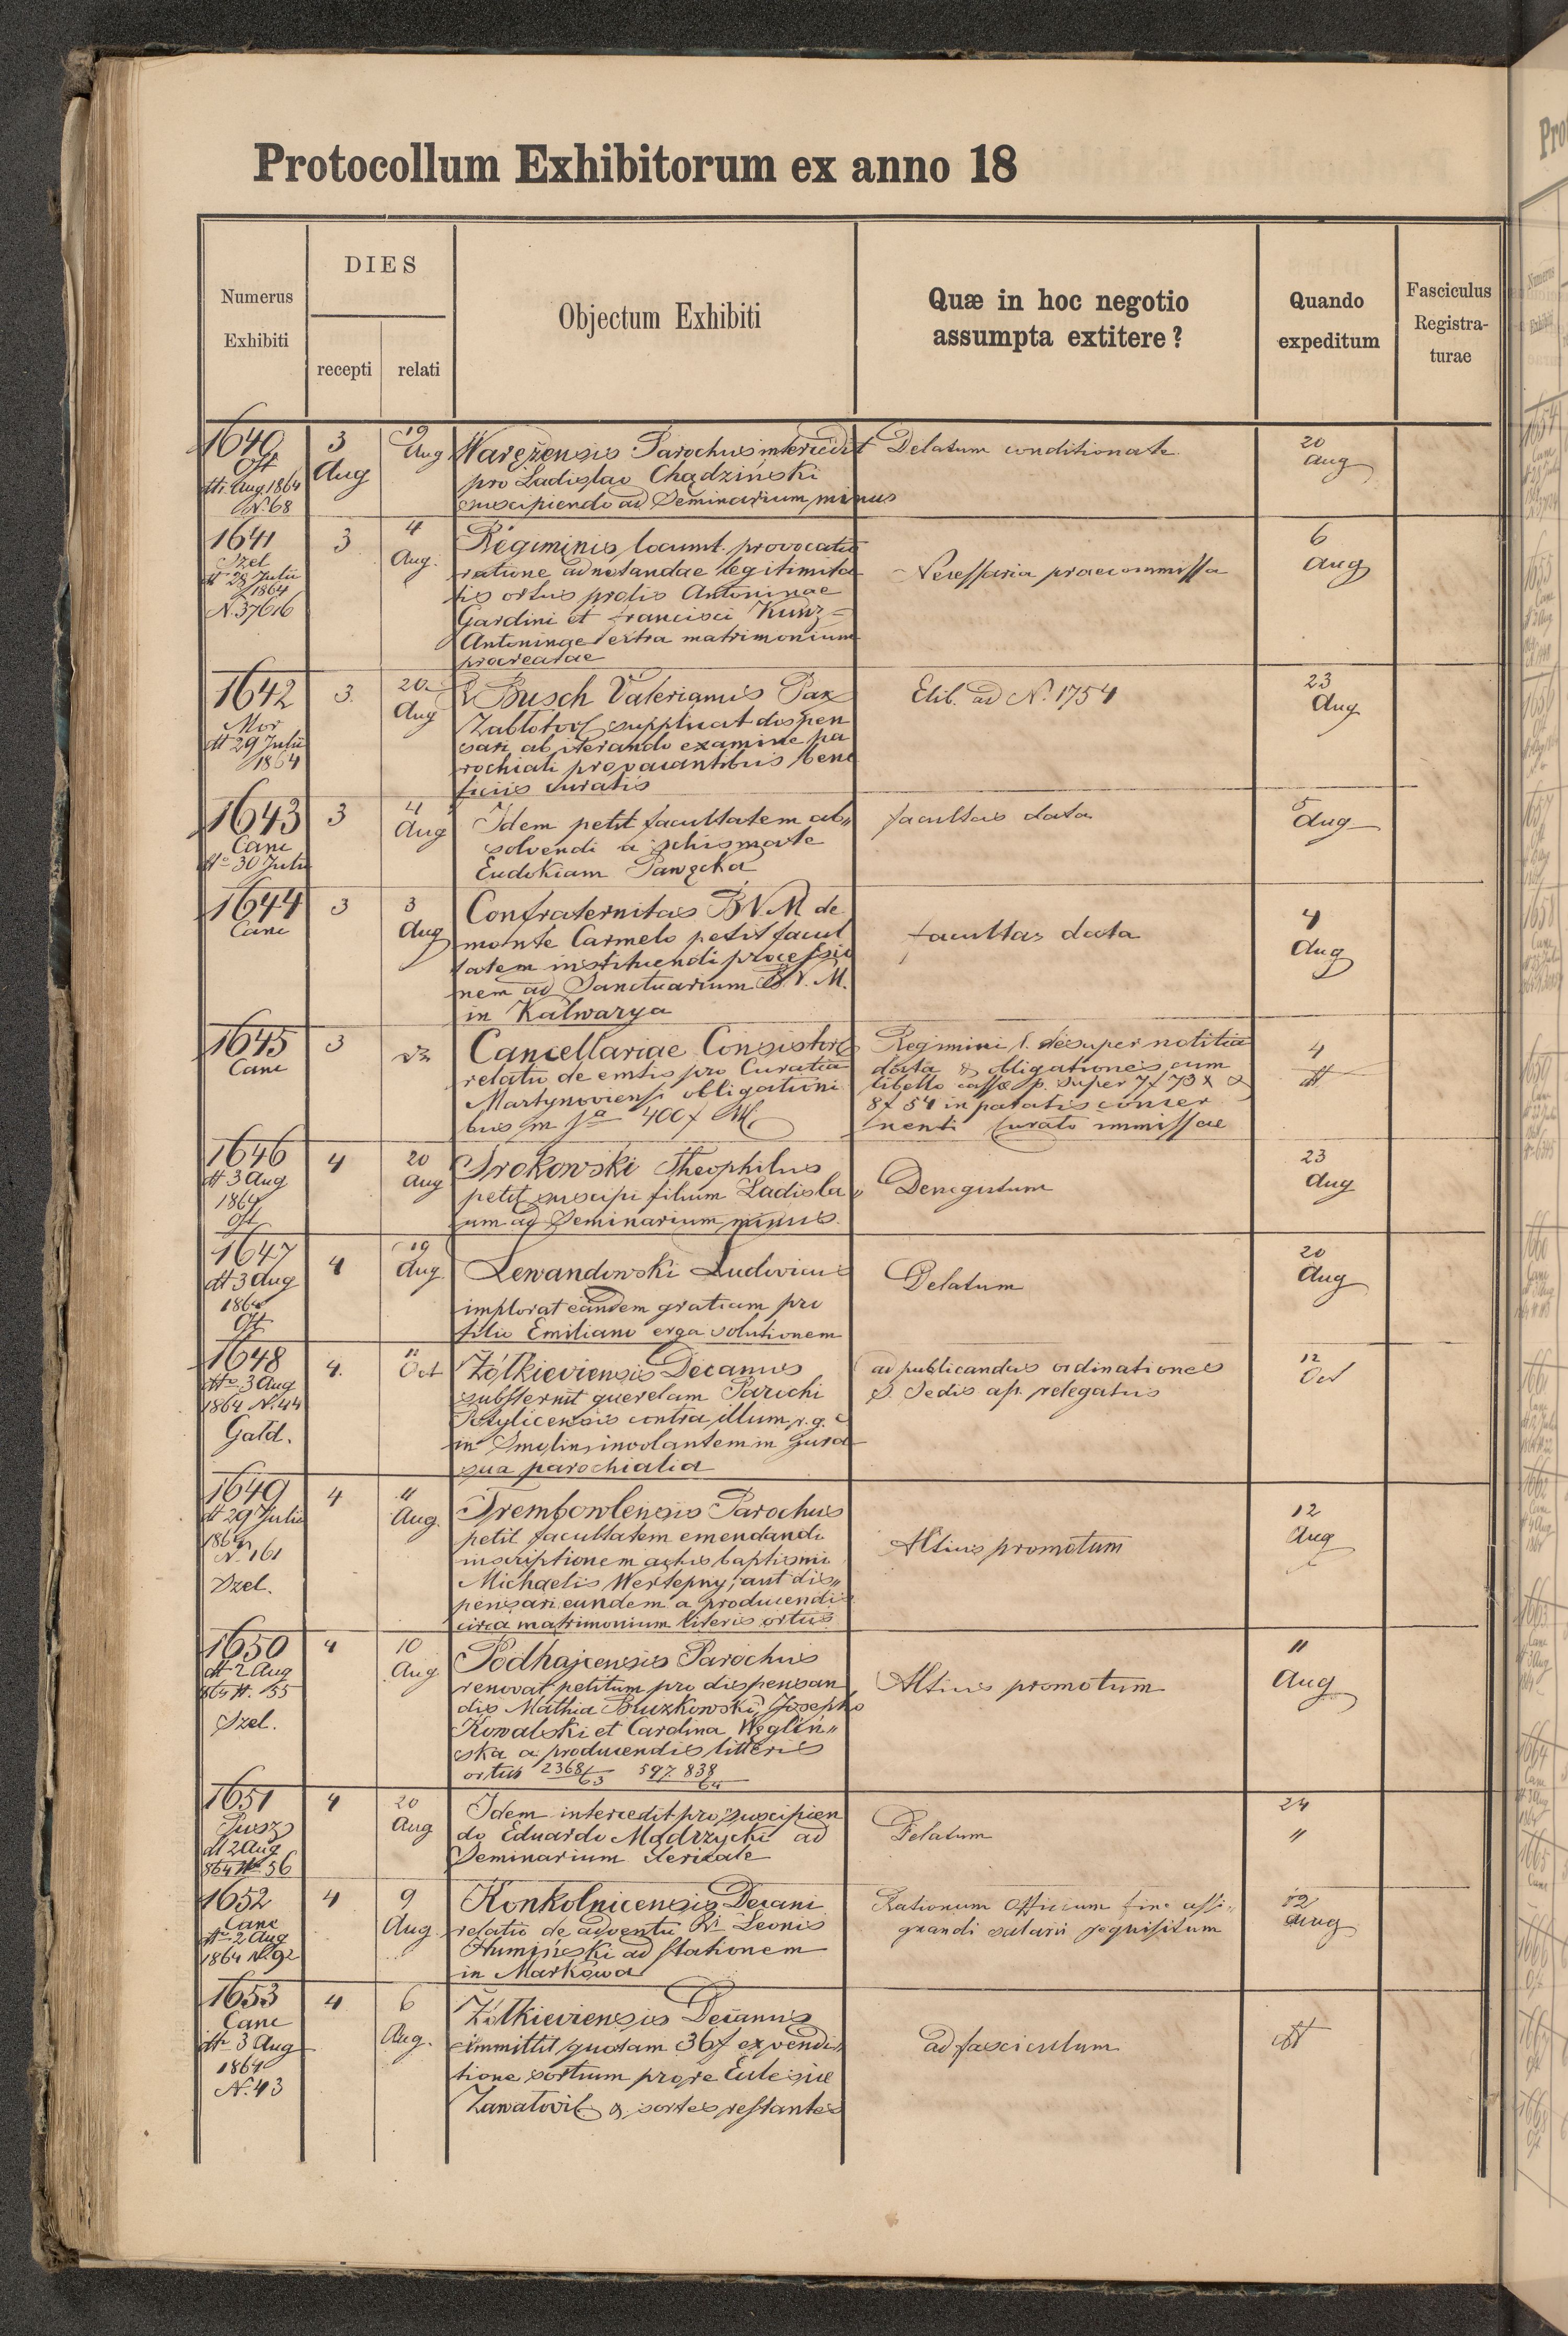 Protocollum Exhibitorum ex anno 18
Numerus Exhibiti
DIES
recepti
relati
Objectum Exhibiti
Quæ in hoc negotio
assumpta extitere?
Quando
expeditum
Fasciculus
Registra-
turae
1640
3
Aug
19
Aug
Waręzensis Parochus intercedit
pro Ladislao Chądziński
suscipiendo ad Seminarium minus
Delatum conditionate
20
Aug
Aug. 1864
N. 68
1641
Szel
dt 28 Julii
1864
N. 37616
3
4
Aug.
Regiminis locumt. provocatio
ratione adnotandae legitimita
tis ortus prolis Antoninae
Gardini et Francisci Kunz =
Antoninae extra matrimonium
procreatae
Necessaria praecommissa
6
Aug
1642
Mor
dt 29 Julii
1864
3.
20
Aug
Busch Valerianus Par
Zabłotov supplicat dispen
sari ab iterando examine pa
rochiali pro vacantibus bene
ficiis curatis
Elib. ad N. 1754
23
Aug
1643
Canc
dto 30 Julii
3
4
Aug
Idem petit facultatem ab"
solvendi a schismate
Eudokiam Pawęcka
facultas data
5
Aug
1644
Canc
3
3
Aug
Confraternitas B.V.M. de
monte Carmelo petit facul
tatem instituendi processio
nem ad Sanctuarium B.V.M.
in Kalwarya
facultas data
4
Aug
1645
Canc
3
Cancellariae Consistor
relatio de emtis pro Curatia
Martynoviensi obligationi
bus
400f
Regimini l. desuper notitia
data & obligationes cum
libello cassae p. super 7f 73x &
8f 54 in paratis concer
nenti Curato immissae
4
dt
1646
dt 3 Aug
1864
4
20
Aug
Trokowski Theophilus
petit suscipi filium Ladisla"
um ad Seminarium minus.
Denegatum
23
Aug
1647
dt 3 Aug
1864
4
19
Aug.
Lewandowski Ludovicus
implorat eandem gratiam pro
filio Emiliano erga solutionem
Delatum
20
Aug
1648
dto 3 Aug
1864 N. 44
Gatd.
4.
12
Oct
Żółkieviensis Decanus
substernit querelam Parochi
Potylicensis contra illum r.g.c
in Smolin, involantem in jura
sua parochialia
ad publicandas ordinationes
S. Sedis ap. relegatus
12
Oct
1649
dt 29 Julii
1864
N. 161
Szel.
4
11
Aug.
Trembowlensis Parochus
petit facultatem emendandi
inscriptionem actus baptismi
Michaelis Wertepny, aut dis"
pensari eundem a producendis
circa matrimonium literis ortus
Altius promotum
12
Aug
1650
dt 2 Aug
864 N. 55
Szel.
4
10
Aug
Podhajcensis Parochus
renovat petitum pro dispensan
dis Mathia Buczkowski, Josepho
Kowalski et Carolina Węgliń"
ska a producendis litteris
ortus 2368/63 597. 838/64
Altius promotum
11
Aug
1651
dt 2 Aug
864 N. 56
4
20
Aug
Idem intercedit pro suscipien
do Eduardo Mądrzycki ad
Seminarium clericale
Delatum
24
"
1652
Canc
dto 2 Aug
1864 N. 92
4
9
Aug.
Konkolnicensis Decani
relatio de adventu Ri Leonis
Humiński ad stationem
in Markowa
Rationum Officium fine assi"
gnandi salarii requisitum
12
Aug
1653
Canc
dto 3 Aug
1864
N. 43
4
6
Aug.
Żółkieviensis Decanus
immittit quotam 36f ex vendi"
tione sortium pro re Ecclesiae
& sortes restantes
ad fasciculum
dt